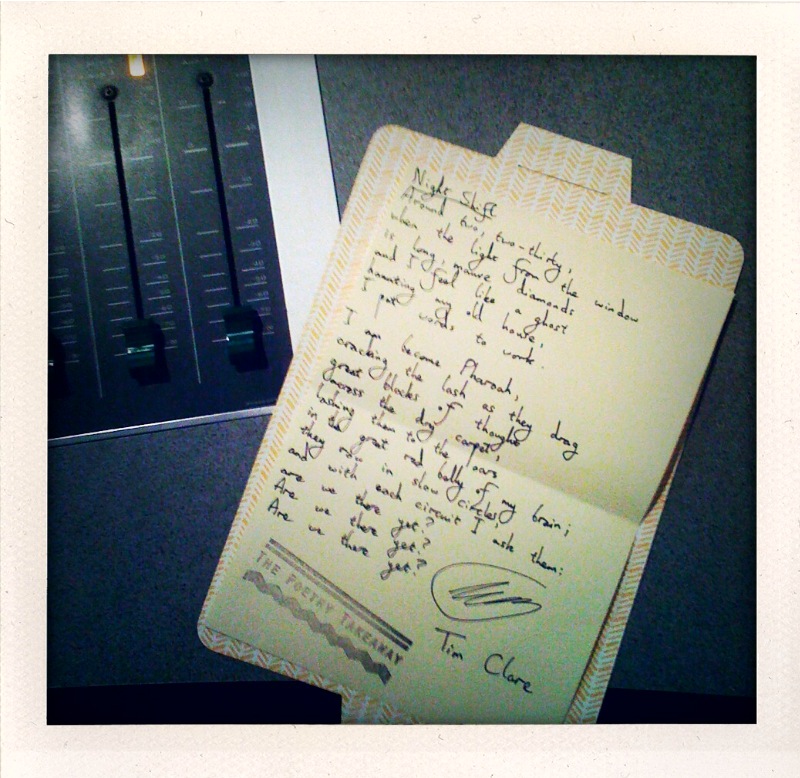 Night Shift
Around two, two-thirty,
when the light from the window
is long, mauve diamonds
and I feel like a ghost
haunting my old house,
I put words to work.
I am become Pharoah,
cracking the lash as they drag
great blocks of thought
across the dry carpet,
lashing them to the oars
in the great red belly of my brain;
they row in slow circles,
and with each circuit I ask them:
are we there yet?
Are we there yet?
Are we there yet?
THE POETRY TAKEAWAY
Tim Clare